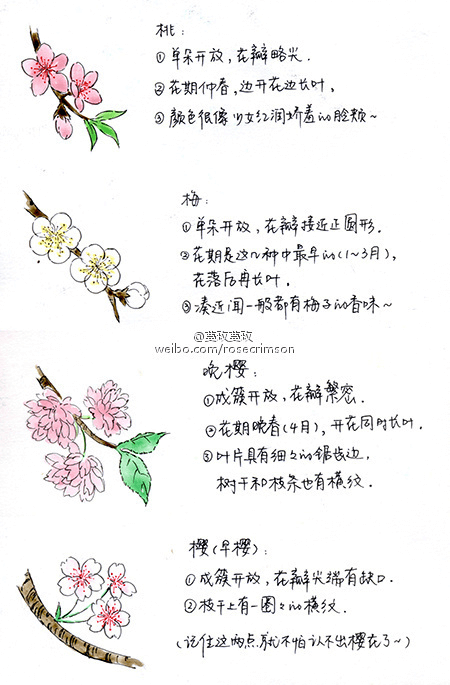 桃:
①单朵开放,花瓣略尖.
②花期仲春,边开花边长叶。
③颜色很像少女红润娇羞的脸颊~
梅:
①单朵开放,花瓣接近正圆形.
②花期是这几种中最早的(1~3月),
花落后再长叶.
③凑近闻一般都有梅子的香味~
@蕶玫蕶玫
weibo.com/rosecrimson
晚樱:
①成簇开放,花瓣繁密.
②花期晚春(4月),开花同时长叶.
③叶片具有细々的锯齿边,
树干和枝条也有横纹.
樱(早樱):
①成簇开放,花瓣尖端有缺口.
②枝干上有一圈々的横纹.
(记住这两点就不怕认不出樱花了~)